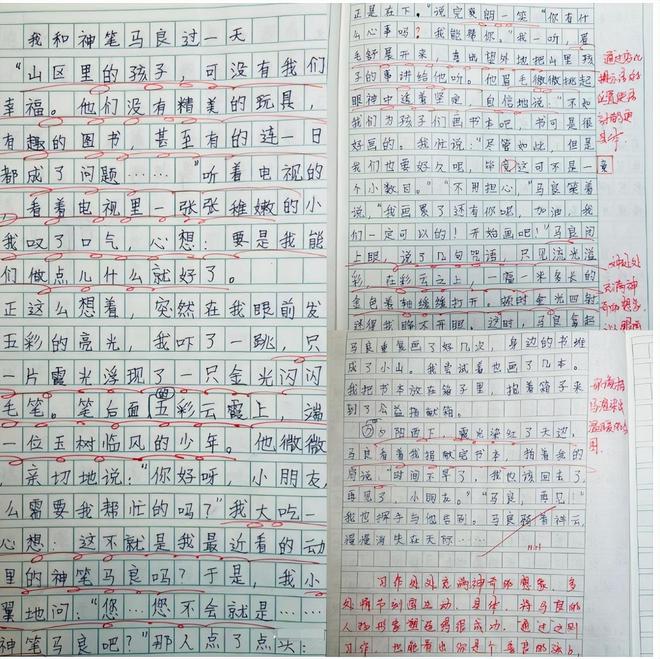 我和神笔马良过一天
“山区里的孩子，可没有我们
幸福。他们没有精美的玩具，
有趣的图书，甚至有的连一日
都成了问题……”听着电视的
，看着电视里一张张稚嫩的小
我叹了口气，心想：要是我能
们做点儿什么就好了。
正这么想着，突然在我眼前发
五彩的亮光，我吓了一跳，只
一片霞光浮现了一只金光闪闪
毛笔。笔后面的五彩云霞上，端
一位玉树临风的少年。他微微
，亲切地说：“你好呀，小朋友，
么需要我帮忙的吗？”我大吃一
心想：这不就是我最近看的动
里的神笔马良吗？于是，我小
翼地问：“您…您不会就是……
神笔马良吧？”那人点了点头：
正是在下。”说完爽朗一笑“你有什
么心事吗？我能帮你。”我一听，眉
毛舒展开来，喜出望外地把山里孩
子的事讲给他听。他眉毛微微挑起
眼神中透着坚定，自信地说：“不如
我们为孩子们画书本吧，书可是很
好画的。我忙说：“尽管如此，但是
我们也要好久呢，毕竟这可不是一
个小数目。”“不用担心，”马良笑着
说，“我画累了还有你呢，加油，我
们一定可以的！开始画吧！”马良闭
上眼，说了几句咒语，只见流光溢
彩，在彩云之上，一幅一米多长的
金色卷轴缓缓打开。顿时金光四射
迷得我睁不开眼。这时，马良拿起
马良重复画了好几次，身边的书堆
成了小山。我尝试着也画了几本。
我把书本放在箱子里，抱着箱子来
到了公益捐献箱。
夕阳西下，霞光染红了天边，
马良看着我捐献完书本，拍着我的
肩说，“时间不早了，我也该回去了，
再见了，小朋友。”“马良，再见！”
我也挥手与他告别。马良骑着祥云，
慢慢消失在天际……
习作处处充满神奇的想象，多
处情节刻画生动、具体，将马良的
人物形象塑造得很成功，通过这则